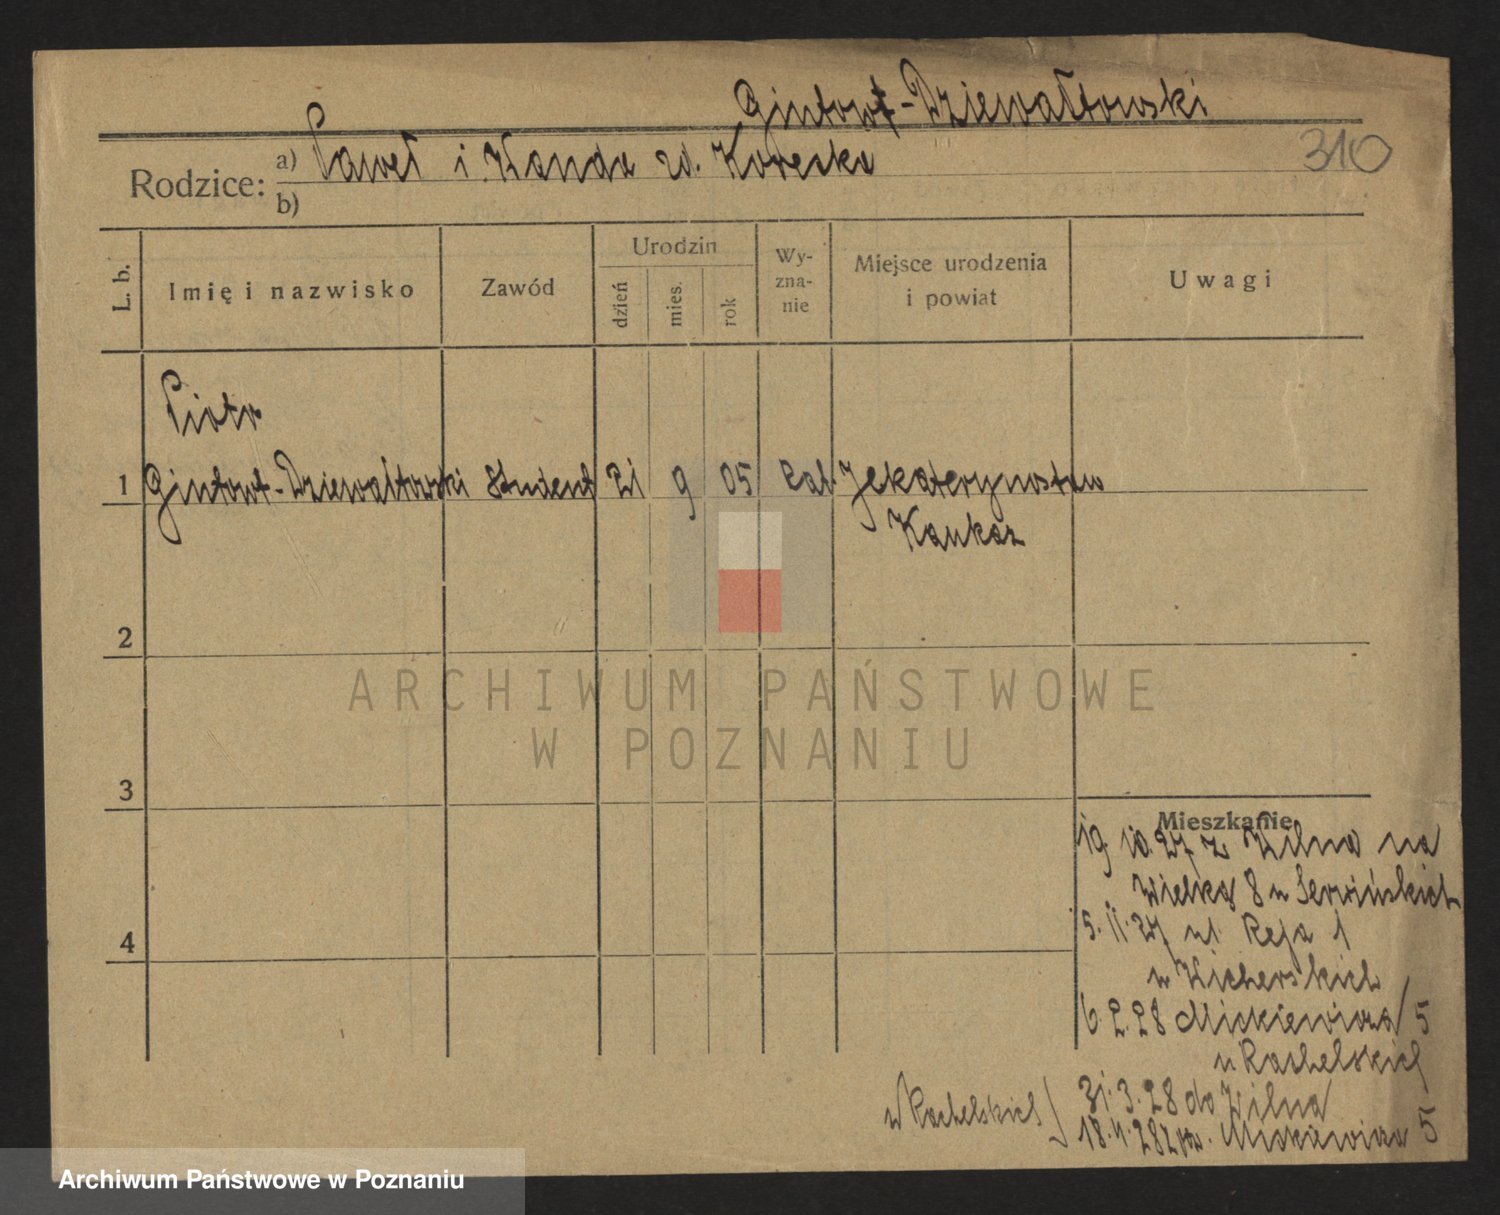 Gintowt-Dziewałtowski
310
Rodzice: a) Paweł i Wanda zd.
b)
L. b.
Imię i nazwisko
Zawód
Urodzin
dzień
mies.
rok
Wy-
zna-
nie
Miejsce urodzenia
i powiat
Uwagi
Piotr
1 Gintowt-Dziewałtowski student 21 9 05 kat Jekaterynosław
Kaukaz
2
ARCHIWUM PAŃSTWOWE
W POZNANIU
3
Mieszkanie
19 10.27 z Wilna na
Wielką 8 u
4
5.11.27 ul. Reja 1
u Wicherskich
6.2.28 Mickiewicza 5
u Rachelskich
31.3.28 do Wilna
u Rachelskich
Mickiewicza 5
Archiwum Państwowe w Poznaniu